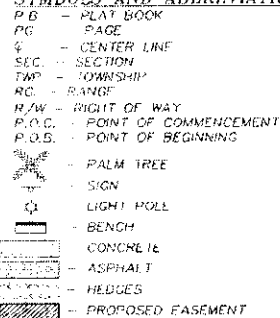 SYMBOLS AND ABBREVIATIO
P.B. - PLAT BOOK
PG. PAGE
℄ - CENTER LINE
SEC. - SECTION
TWP - TOWNSHIP
RG. - RANGE
R/W - RIGHT OF WAY
P.O.C. - POINT OF COMMENCEMENT
P.O.B. - POINT OF BEGINNING
- PALM TREE
- SIGN
- LIGHT POLE
- BENCH
- CONCRETE
- ASPHALT
- HEDGES
- PROPOSED EASEMENT